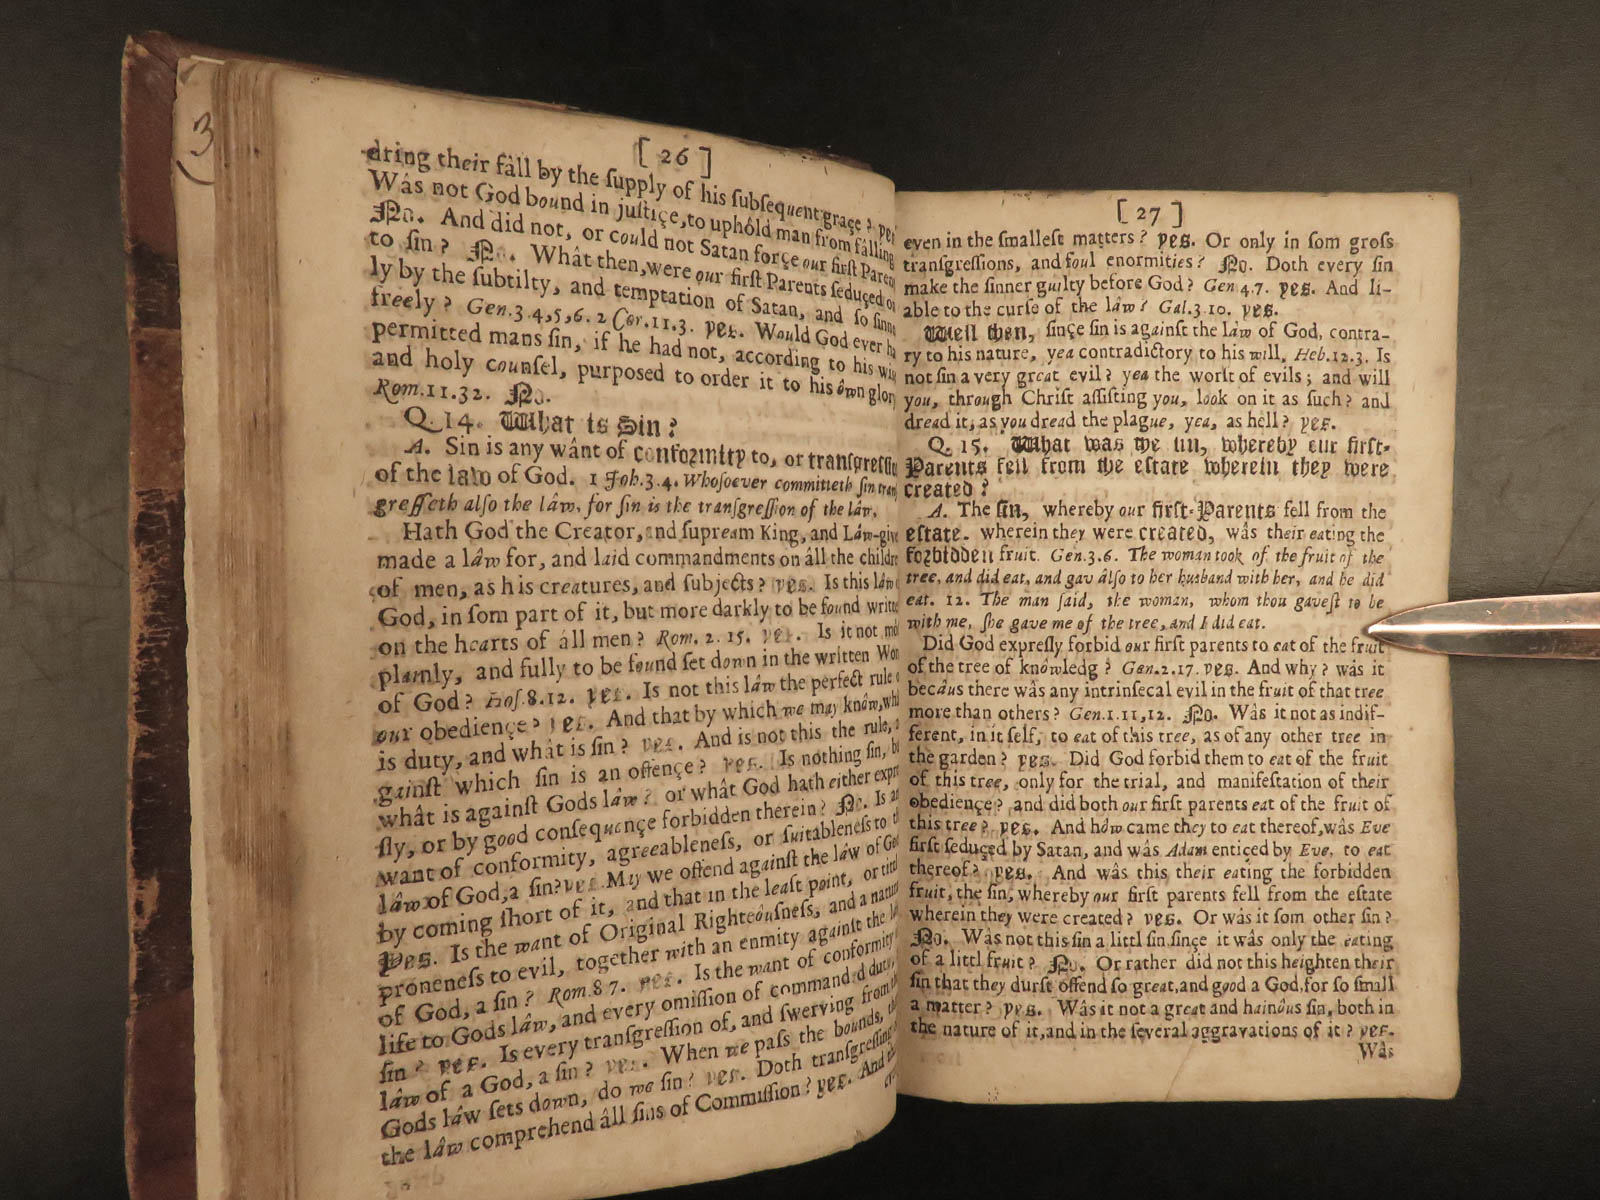 3
[ 26 ]
dring their fâll by the ſupply of his ſubſequent graçe? yes
Wâs not God bound in juſtiçe, to uphôld man from fâlling
No. And did not, or could not Satan forçe our firſt Paren
to ſin? No. Whât then, were our firſt Parents ſeduçed on
ly by the ſubtilty, and temptation of Satan, and ſo ſinne
freely? Gen. 3. 4, 5, 6. 2 Cor. 11. 3. yes. Would God ever ha
permitted mans ſin, if he had not, according to his wiſ
and holy counſel, purpoſed to order it to his ôwn glory
Rom. 11. 32. No.
Q. 14. What is Sin?
A. Sin is any wânt of conformity to, or tranſgreſſio
of the law of God. 1 Joh. 3. 4. Whoſoever committeth ſin tranſ
greſſeth alſo the lâw, for ſin is the tranſgreſſion of the lâw.
Hath God the Creator, and ſupream King, and Lâw-give
made a lâw for, and laid commandments on âll the childre
of men, as his creatures, and ſubjects? yes. Is this lâw
God, in ſom part of it, but more darkly to be found writte
on the hearts of âll men? Rom. 2. 15. yes. Is it not mo
plainly, and fully to be found ſet down in the written Wor
of God? Hoſ. 8. 12. yes. Is not this lâw the perfect rule o
our obediençe? yes. And that by which we may knôw, wh
is duty, and whât is ſin? yes. And is not this the rule, a
gainſt which ſin is an offençe? yes. Is nothing ſin, b
whât is againſt Gods lâw? or whât God hath either expre
ſly, or by good conſequençe forbidden therein? No. Is a
want of conformity, agreeableneſs, or ſuitableneſs to t
lâw of God, a ſin? yes. May we offend againſt the lâw of Go
by coming ſhort of it, and that in the leaſt point, or title
Yes. Is the want of Original Righteôuſneſs, and a natur
proneneſs to evil, together with an enmity againſt the l
of God, a ſin? Rom. 8 7. yes. Is the want of conformity
life to Gods lâw, and every omiſſion of commanded duty,
ſin? yes. Is every tranſgreſſion of, and ſwerving from th
lâw of a God, a ſin? yes. When we paſs the bounds, th
Gods lâw ſets down, do we ſin? yes. Doth tranſgreſſing
the lâw comprehend âll ſins of Commiſſion? yes. And th
[ 27 ]
even in the ſmalleſt matters? yes. Or only in ſom groſs
tranſgreſſions, and foul enormities? No. Doth every ſin
make the ſinner guilty before God? Gen 4. 7. yes. And li-
able to the curſe of the lâw? Gal. 3. 10. yes.
Well then, ſinçe ſin is againſt the lâw of God, contra-
ry to his nature, yea contradictory to his will, Heb. 12. 3. Is
not ſin a very great evil? yea the worſt of evils; and will
you, through Chriſt aſſiſting you, look on it as ſuch? and
dread it, as you dread the plague, yea, as hell? yes.
Q. 15. What was the ſin, whereby our firſt-
Parents fell from the eſtate wherein they were
created?
A. The ſin, whereby our firſt-Parents fell from the
eſtate. wherein they were created, wâs their eating the
forbidden fruit. Gen. 3. 6. The woman took of the fruit of the
tree, and did eat, and gav âlſo to her husband with her, and he did
eat. 12. The man ſaid, the woman, whom thou gaveſt to be
with me, ſhe gave me of the tree, and I did eat.
Did God expreſly forbid our firſt parents to eat of the fruit
of the tree of knôwledg? Gen. 2. 17. yes. And why? wâs it
becâus there wâs any intrinſecal evil in the fruit of that tree
more than others? Gen. 1. 11, 12. No. Wâs it not as indif-
ferent, in it ſelf, to eat of this tree, as of any other tree in
the garden? yes. Did God forbid them to eat of the fruit
of this tree, only for the trial, and manifeſtation of their
obediençe? and did both our firſt parents eat of the fruit of
this tree? yes. And hôw came they to eat thereof, wâs Eve
firſt ſeduçed by Satan, and wâs Adam entiçed by Eve, to eat
thereof? yes. And wâs this their eating the forbidden
fruit, the ſin, whereby our firſt parents fell from the eſtate
wherein they were created? yes. Or wâs it ſom other ſin?
No. Wâs not this ſin a littl ſin ſinçe it wâs only the eating
of a littl fruit? No. Or rather did not this heighten their
ſin that they durſt offend ſo great, and good a God, for ſo ſmall
a matter? yes. Wâs it not a great and hainôus ſin, both in
the nature of it, and in the ſeveral aggravations of it? yes.
Wâs